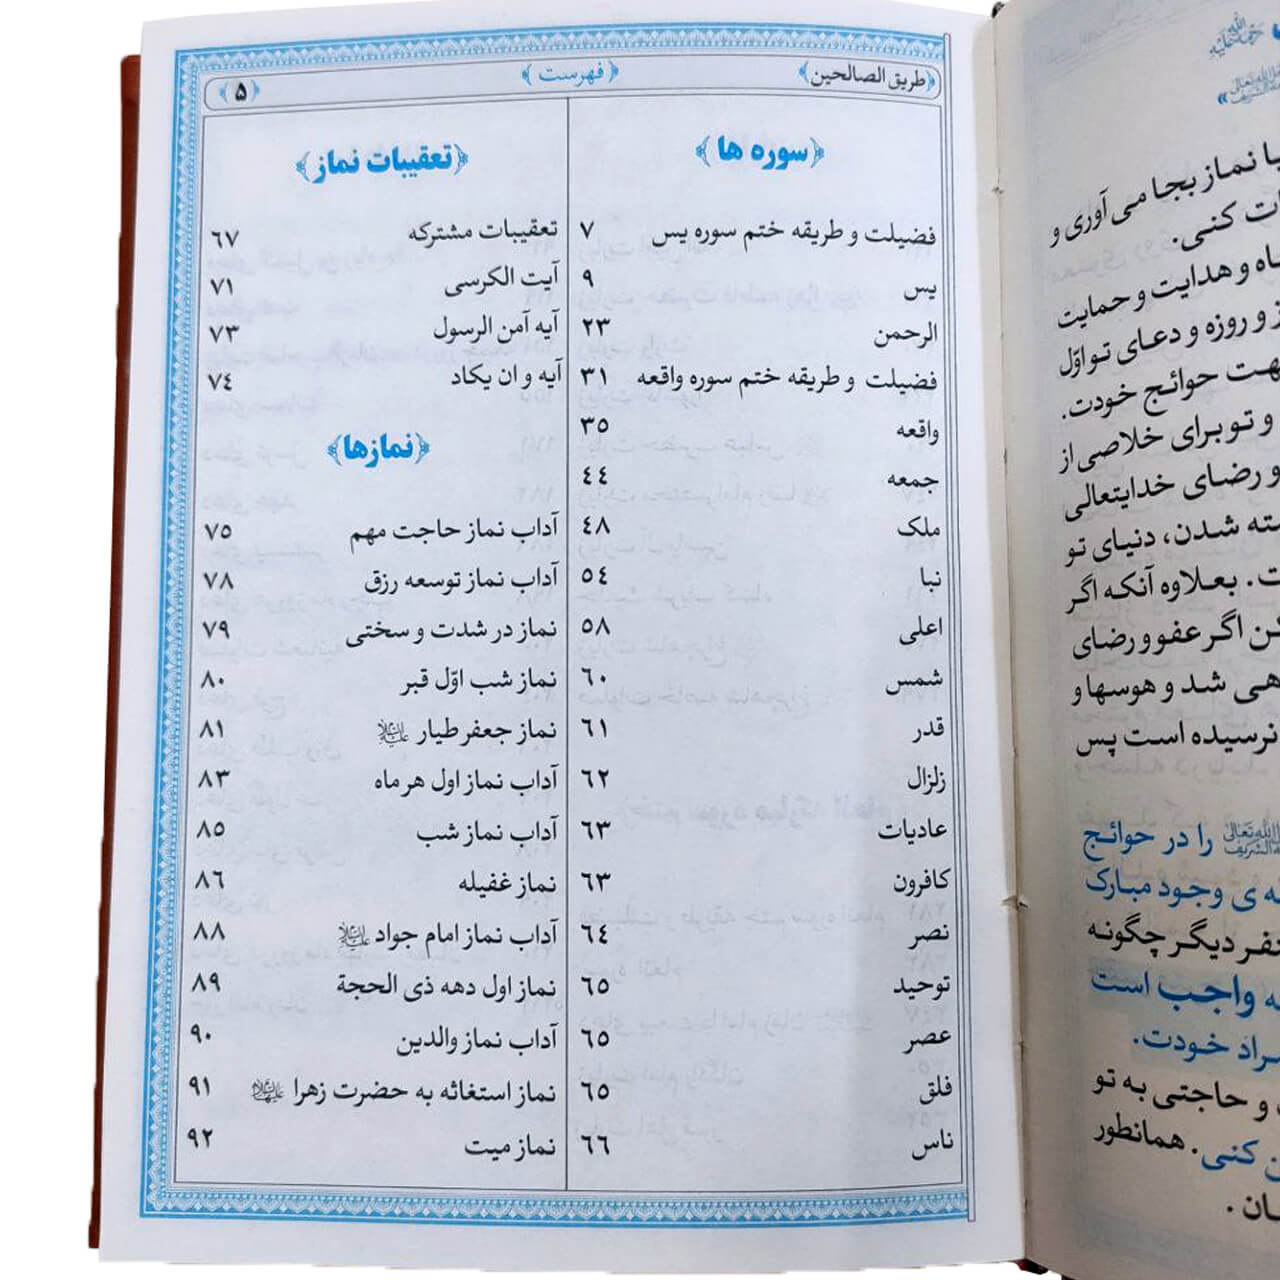 ﴿طریق الصالحین﴾
﴿فهرست﴾
﴿۵﴾
﴿سوره ها﴾
فضیلت و طریقه ختم سوره یس ۷
یس ۹
الرحمن ۲۳
فضیلت و طریقه ختم سوره واقعه ۳۱
واقعه ۳۵
جمعه ٤٤
ملک ٤۸
نبا ٥٤
اعلی ۵۸
شمس ۶۰
قدر ۶۱
زلزال ۶۲
عادیات ۶۳
کافرون ۶۳
نصر ٦٤
توحید ۶۵
عصر ۶۵
فلق ۶۵
ناس ۶۶
﴿تعقیبات نماز﴾
تعقیبات مشترکه ۶۷
آیت الکرسی ۷۱
آیه آمن الرسول ۷۳
آیه و ان یکاد ۷٤
﴿نمازها﴾
آداب نماز حاجت مهم ۷۵
آداب نماز توسعه رزق ۷۸
نماز در شدت و سختی ۷۹
نماز شب اوّل قبر ۸۰
نماز جعفر طیار علیه‌السلام ۸۱
آداب نماز اول هر ماه ۸۳
آداب نماز شب ۸۵
نماز غفیله ۸۶
آداب نماز امام جواد علیه‌السلام ۸۸
نماز اول دهه ذی الحجة ۸۹
آداب نماز والدین ۹۰
نماز استغاثه به حضرت زهرا علیهاالسلام ۹۱
نماز میت ۹۲
یا نماز بجا می آوری و
رت کنی.
اه و هدایت و حمایت
ز و روزه و دعای تو اوّل
هت حوائج خودت.
و تو برای خلاصی از
و رضای خدایتعالی
سته شدن، دنیای تو
ت. بعلاوه آنکه اگر
ن اگر عفو و رضای
هی شد و هوسها و
نرسیده است پس
را در حوائج
ه ی وجود مبارک
فر دیگر چگونه
ه واجب است
راد خودت.
و حاجتی به تو
ن کنی. همانطور
ان .